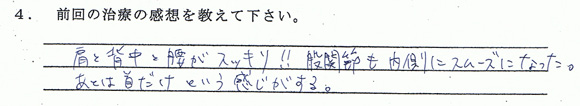 4. 前回の治療の感想を教えて下さい。
肩と背中と腰がスッキリ!! 股関節も内側にスムーズになった。
あとは首だけという感じがする。